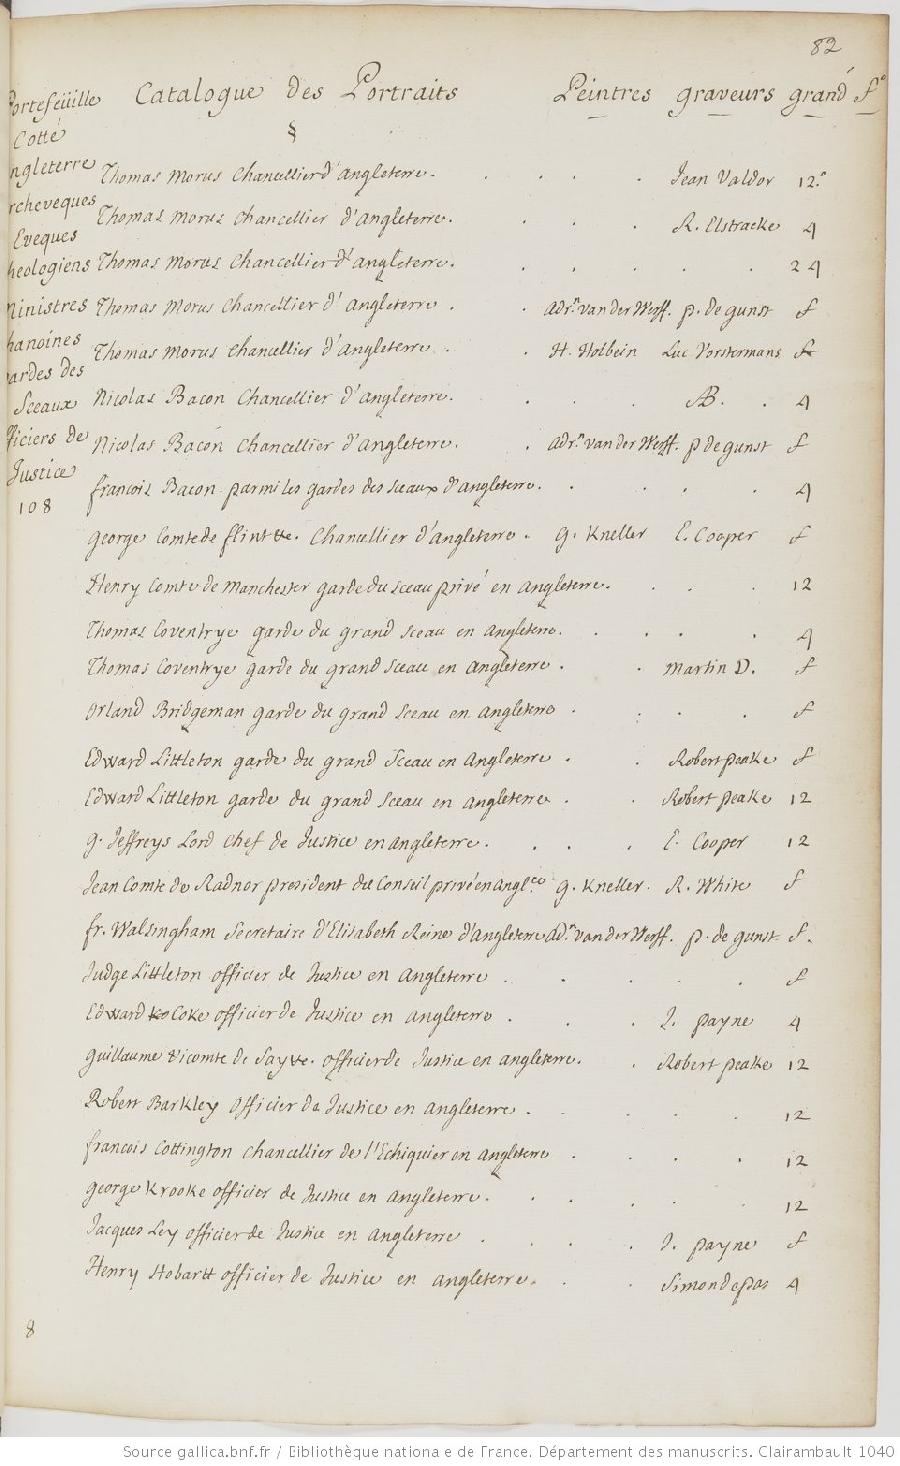 82
Portefeüille Catalogue des Portraits Peintres graveurs grand fo
Cotté §
Angleterre
Archeveques
Eveques
Theologiens
Ministres
Chanoines
Gardes des
Sceaux
officiers de
Justice
108
Thomas Morus Chancellier d'angleterre. Jean Valdor 12.o
Thomas Morus Chancellier d'angleterre. R. Elstracke 4
Thomas Morus Chancellier d'angleterre. 24
Thomas Morus Chancellier d'angleterre. adr.n van der Werff. p. de gunst f
Thomas Morus Chancellier d'angleterre. H. Holbein Luc Vorstermans f
Nicolas Bacon Chancellier d'angleterre. AB. 4
Nicolas Bacon Chancellier d'angleterre. adr.n van der Werff. p de gunst f
francois Bacon parmi les gardes des sceaux d'angleterre. 4
george Comte de flintte. Chancellier d'angleterre. g. Kneller E. Cooper f
Henry Comte de Manchester garde du sceau privé en angleterre. 12
Thomas Coventrye garde du grand sceau en angleterre. 4
Thomas Coventrye garde du grand sceau en angleterre. Martin D. f
orland Bridgeman garde du grand sceau en angleterre f
Edward Littleton garde du grand Sceau en angleterre. Robert peake f
Edward Littleton garde du grand sceau en angleterre. Robert peake 12
g. Jeffreys Lord chef de Justice en angleterre. E. Cooper 12
Jean Comte de Radnor president du Conseil privé en angl.ce g. Kneller. R. White f
fr. Walsingham Secretaire d'Elisabeth Reine d'angleterre ad.n van der Werff. p. de gunst f.
Judge Littleton officier de Justice en angleterre f
Edward Ko Coke officier de Justice en angleterre. J. payne 4
guillaume vicomte de Sayve. officier de Justice en angleterre. Robert peake 12
Robert Barkley officier de Justice en angleterre. 12
francois Cottington chancellier de l'Echiquier en angleterre 12
george Krooke officier de Justice en angleterre. 12
Jacques Ley officier de Justice en angleterre. J. payne f
Henry Hobartt officier de Justice en angleterre. Simon de pas 4
8
Source gallica.bnf.fr / Bibliothèque nationale de France. Département des manuscrits. Clairambault 1040